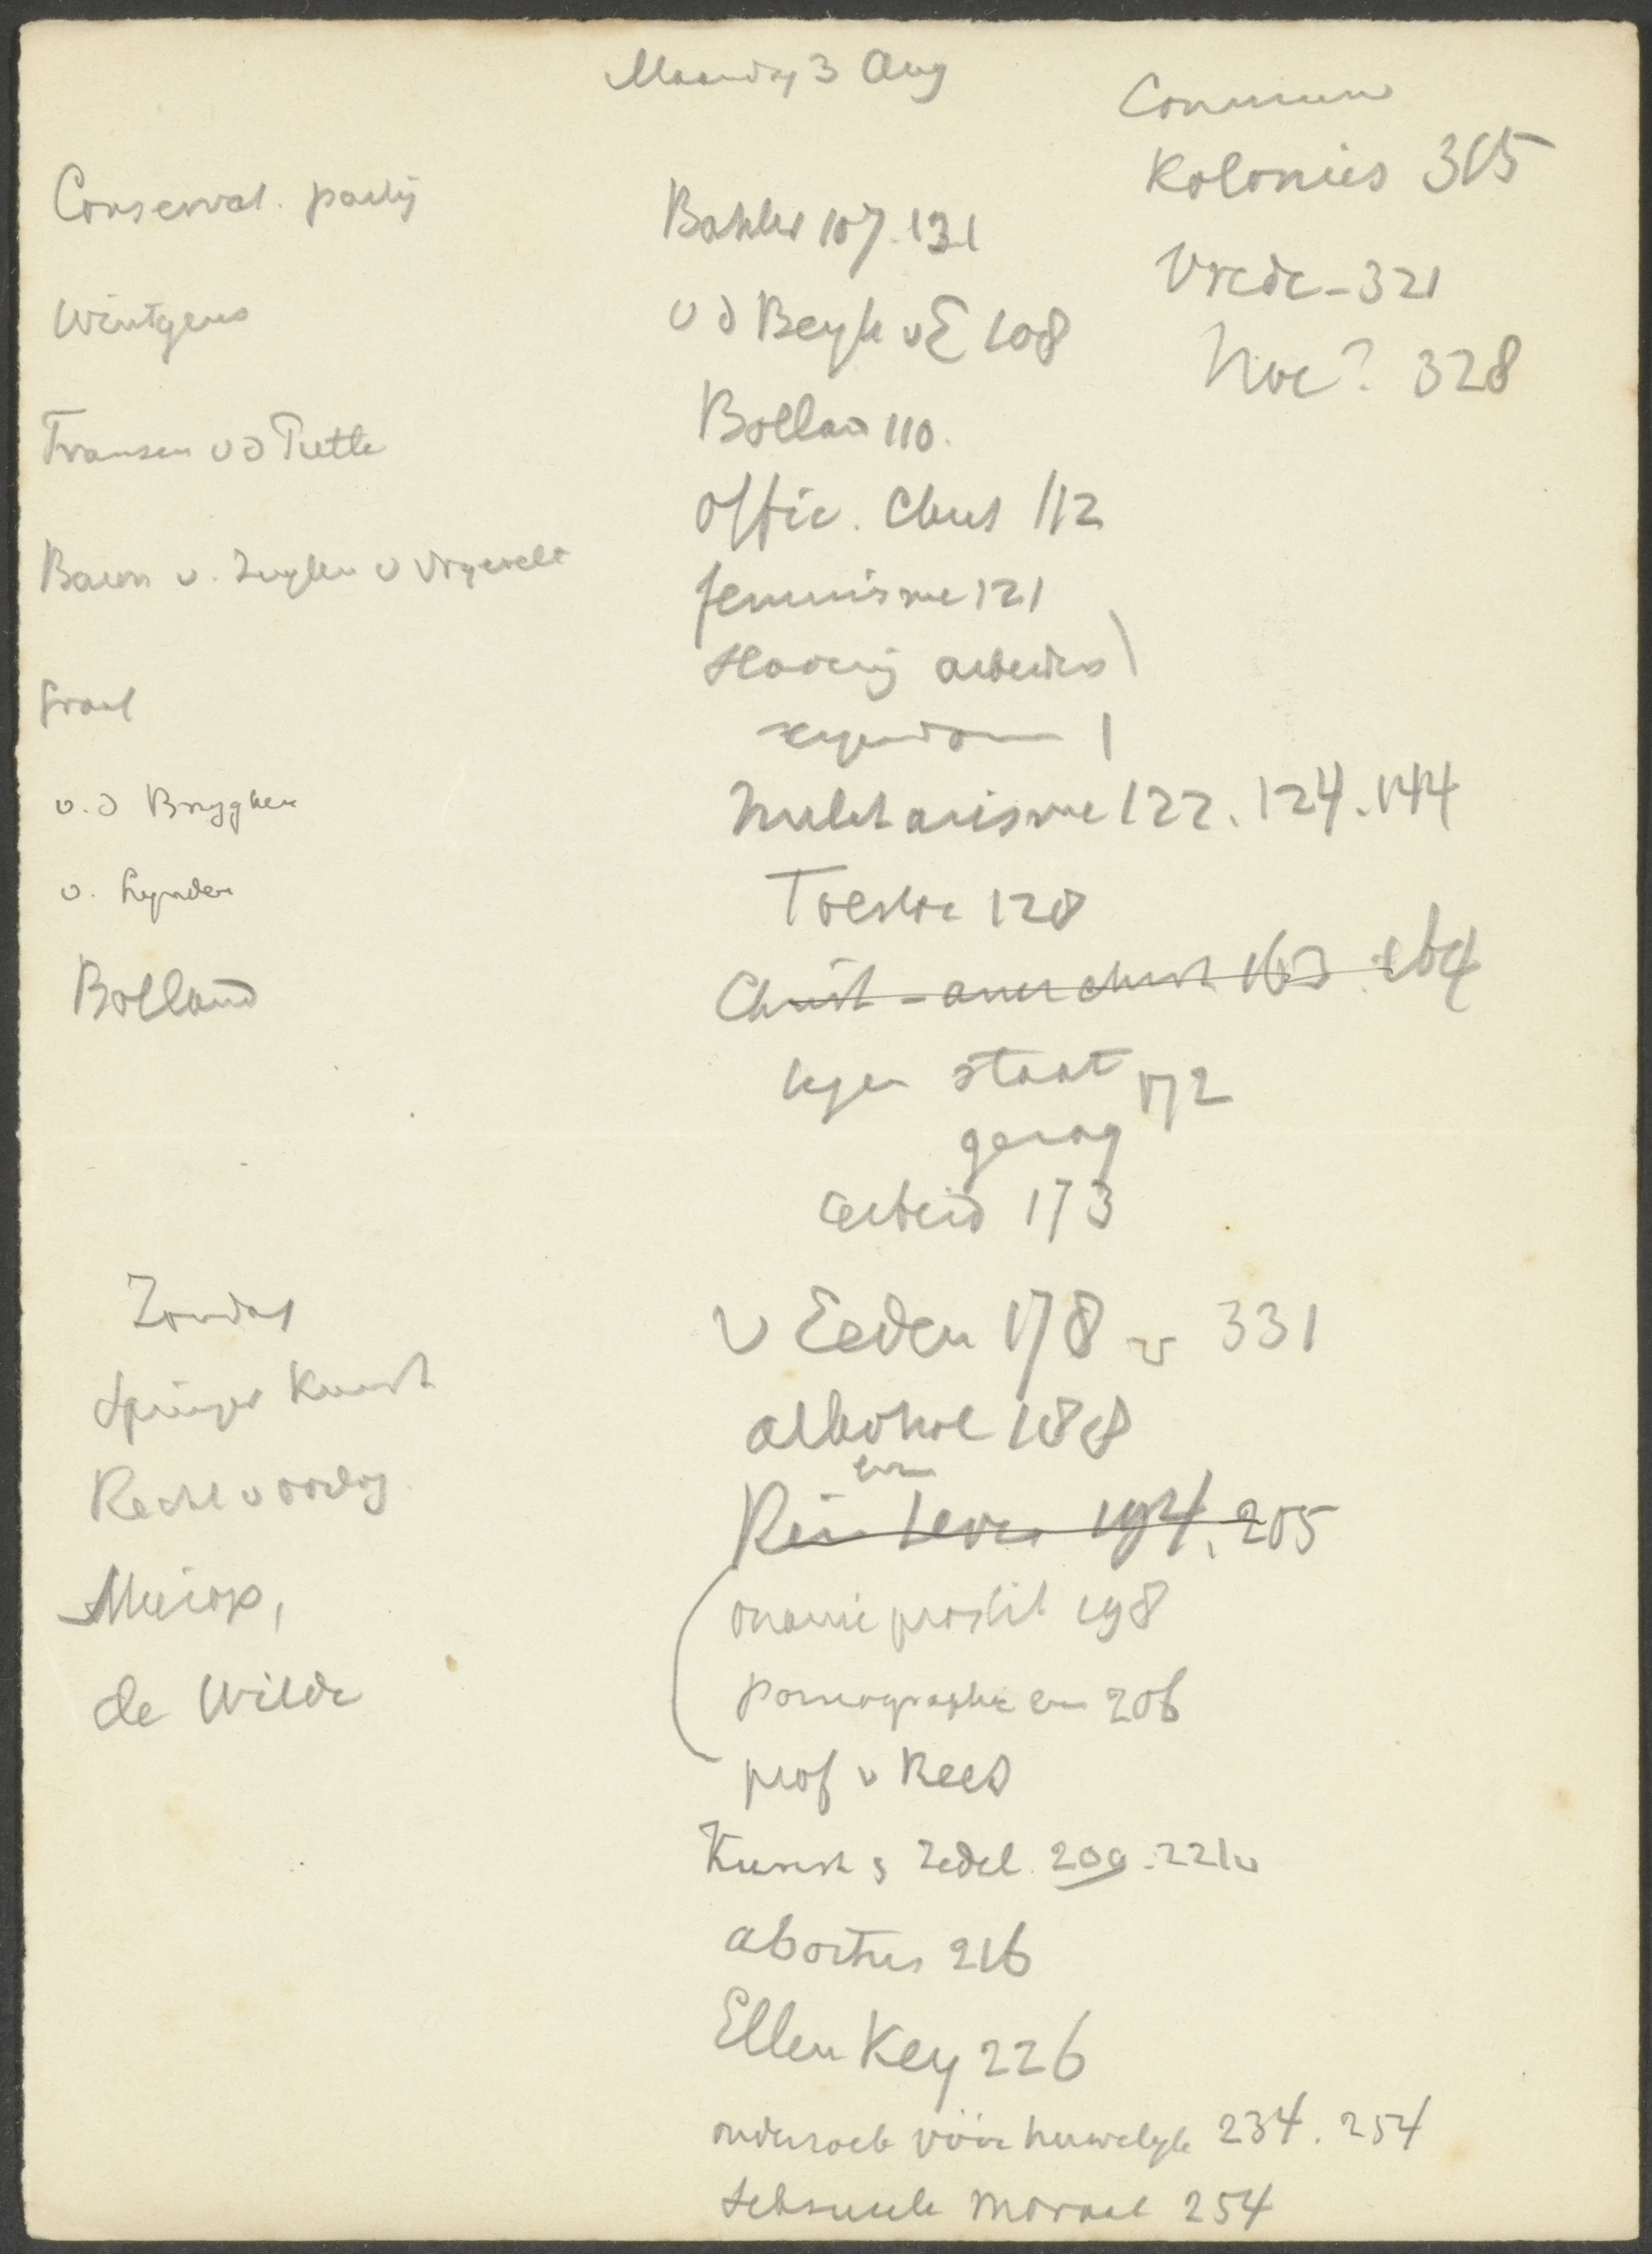 Maandag 3 Aug
Conserwat. partij
Wintgens
Fransen v d Putte
Baron v. Zuylen v Nyevelt
Graaf
v. d Brugghen
v. Lynden
Bolland
Zondag
Spinoza Kunst
Rechtvaardig
Mesdag,
de Wilde
Bahler 107. 131
v d Bergh v E 108
Bolland 110.
Offic. Chris 112
feminisme 121
Slavernij arbeiders
eigendom
Militarisme 122. 124. 144
Tolstoi 128
Christ - anarchist 163. 164
tegen staat 172
gezag
arbeid 173
v Eeden 178 v 331
alkohol 188
Rein leven 194. 205
onanie prostit 198
pornographie en 206
prof v Rees
Kunst & Zedel. 209. 221v
abortus 216
Ellen Key 226
onderzoek vóór huwelyk 234. 254
Seksueele Moraal 254
Commun
Kolonies 315
Vrede - 321
Hoe? 328